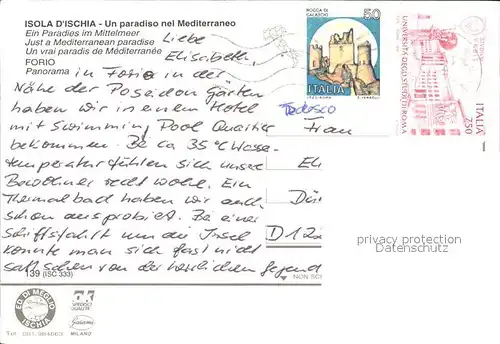 ISOLA D'ISCHIA - Un paradiso nel Mediterraneo
Ein Paradies im Mittelmeer
Just a Mediterranean paradise
Un vrai paradis de Mediterranée
FORIO
Panorama
Liebe
Elisabeth,
in Forio in der
Nähe der Poseidon Gärten
haben wir in einem Hotel
mit Swimming Pool Quartier
bekommen. Bei ca 35°C Wasser-
temperatur fühlen sich unsere
Bewohner recht wohl. Ein
Thermalbad haben wir auch
schon ausprobiert. Bei einer
Schiffsfahrt um die Insel
konnte man sich fast nicht
satt sehen von der herrlichen Gegend
139 (ISC 333)
ED. DI MEGLIO
ISCHIA
MILANO
ROCCA DI
CALASCIO
50
ITALIA
Tedesco
Frau
Eli
Dür
D 12
UNIVERSITÀ DEGLI STUDI DI ROMA
ITALIA
750
privacy protection
Datenschutz
NON SC